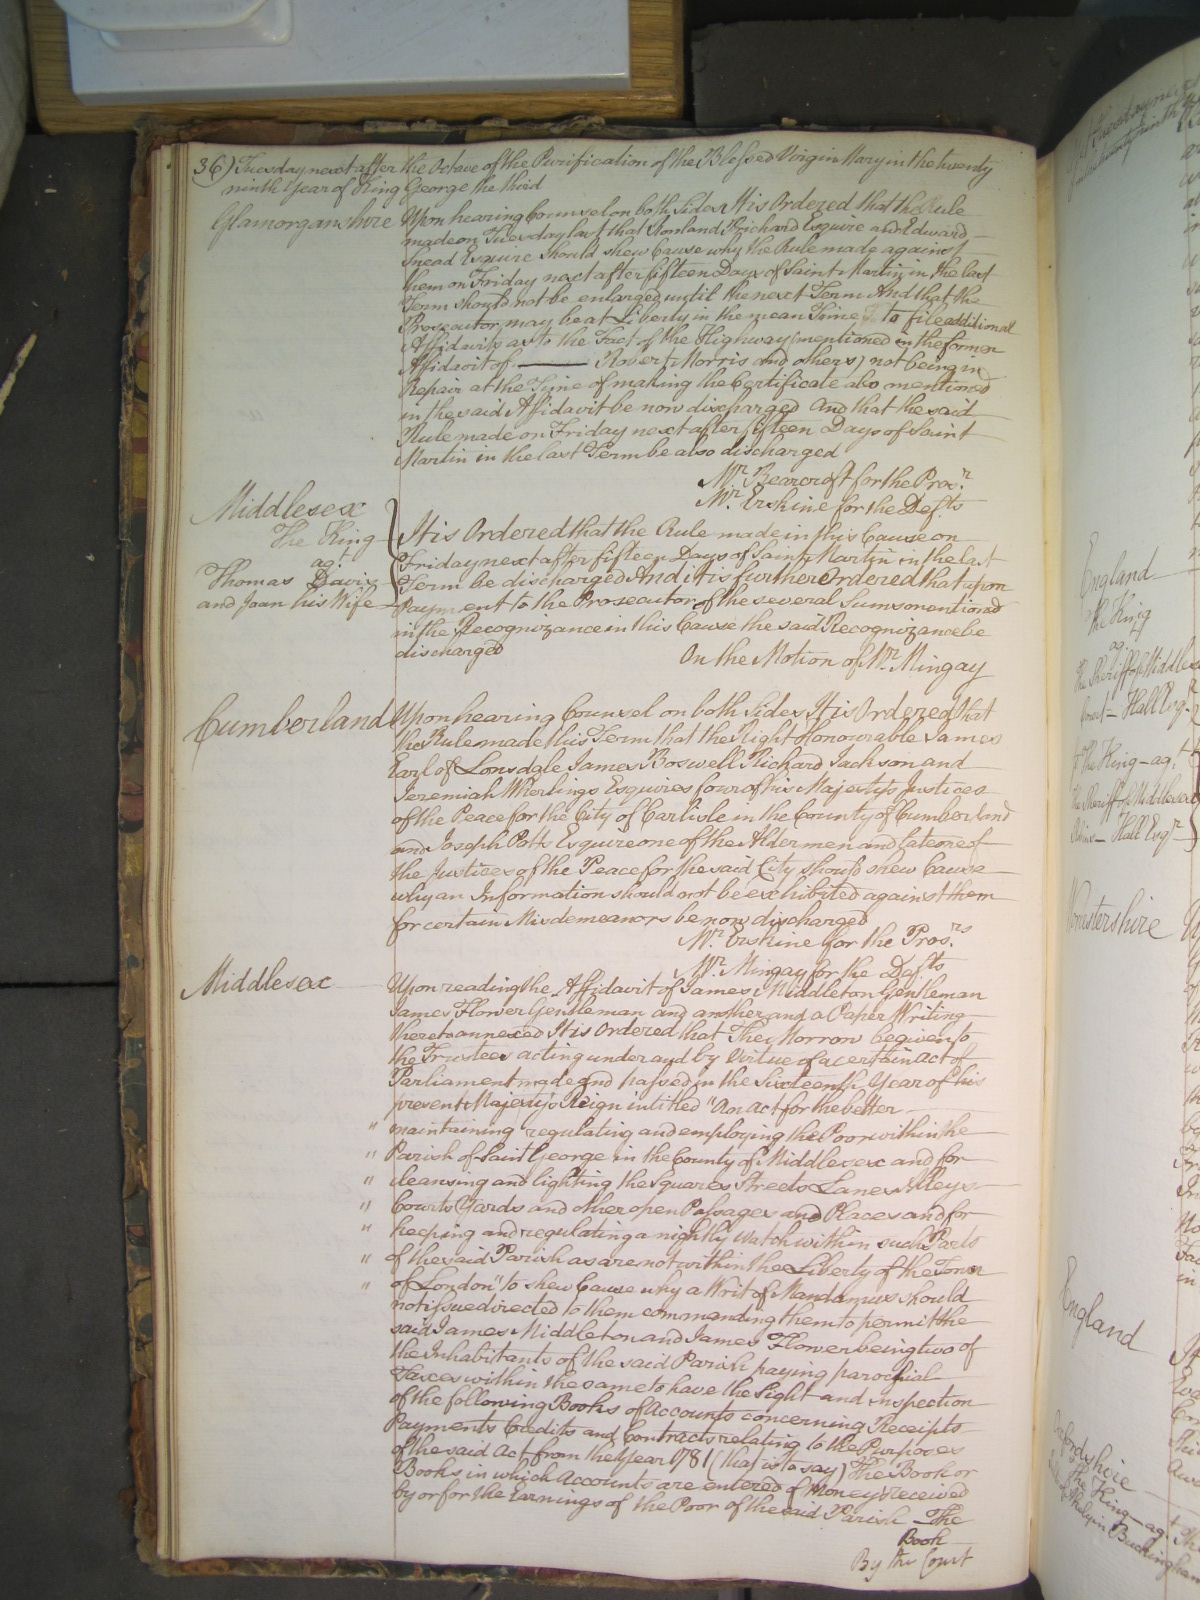 36) Tuesday next after the Octave of the Purification of the Blessed Virgin Mary in the twenty
ninth Year of King George the third
Glamorganshire Upon hearing Counsel on both Sides It is Ordered that the Rule
made on Tuesday last that Rowland Prichard Esquire and Edward
Snead Esquire should shew Cause why the Rule made against
them on Friday next after fifteen Days of Saint Martin in the last
Term should not be enlarged until the next Term And that the
Prosecutor may be at Liberty in the mean Time to file additional
Affidavits as to the Fact of the Highway (mentioned in the former
Affidavit of ——— Robert Morris and others) not being in
Repair at the Time of making the Certificate also mentioned
in the said Affidavit be now discharged And that the said
Rule made on Friday next after fifteen Days of Saint
Martin in the last Term be also discharged
Mr. Bearcroft for the Prosr.
Mr. Erskine for the Defts
Middlesex
The King
agt.
Thomas Davis
and Joan his Wife
It is Ordered that the Rule made in this Cause on
Friday next after fifteen Days of Saint Martin in the last
Term be discharged And it is further Ordered that upon
Payment to the Prosecutor of the several Sums mentioned
in the Recognizance in this Cause the said Recognizance be
discharged
On the Motion of Mr. Mingay
Cumberland Upon hearing Counsel on both Sides It is Ordered that
the Rule made this Term that the Right Honourable James
Earl of Lonsdale James Boswell Richard Jackson and
Jeremiah Wherlings Esquires four of his Majestys Justices
of the Peace for the City of Carlisle in the County of Cumberland
and Joseph Potts Esquire one of the Aldermen and late one of
the Justices of the Peace for the said City should shew Cause
why an Information should not be exhibited against them
for certain Misdemeanors be now discharged
Mr. Erskine for the Prosrs.
Mr. Mingay for the Defts
Middlesex Upon reading the Affidavit of James Middleton Gentleman
James Flower Gentleman and another and a Paper Writing
thereto annexed It is Ordered that The Morrow be given to
the Trustees acting under and by Virtue of a certain Act of
Parliament made and passed in the Sixteenth Year of his
present Majesty's Reign intitled "An Act for the better
" maintaining regulating and employing the Poor within the
" Parish of Saint George in the County of Middlesex and for
" cleansing and lighting the Squares Streets Lanes Alleys
" Courts Yards and other open Passages and Places and for
" keeping and regulating a nightly Watch within such Parts
" of the said Parish as are not within the Liberty of the Tower
" of London" to shew Cause why a Writ of Mandamus should
not issue directed to them commanding them to permit the
said James Middleton and James Flower being two of
the Inhabitants of the said Parish paying parochial
Taxes within the same to have the Sight and inspection
of the following Books of Accounts concerning Receipts
Payments Credits and Contracts relating to the Purposes
of the said Act from the Year 1781 (that is to say) The Book or
Books in which Accounts are entered of Money received
by or for the Earnings of the Poor of the said Parish The
Book
By the Court
England
The King
agt
the Sheriff of Middlesex
Hall Esqr
The King — agt.
the Sheriff of Middlesex
Hall Esqr
Worcestershire
England
Oxfordshire
The King — agt.